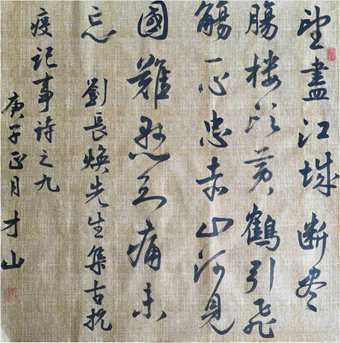 望盡江城斷尽
腸楼头黄鶴引飛
觴一心忠赤山河見
國難痛未
忘 劉長煥先生集古抗
疫記事詩之九
庚子正月才山